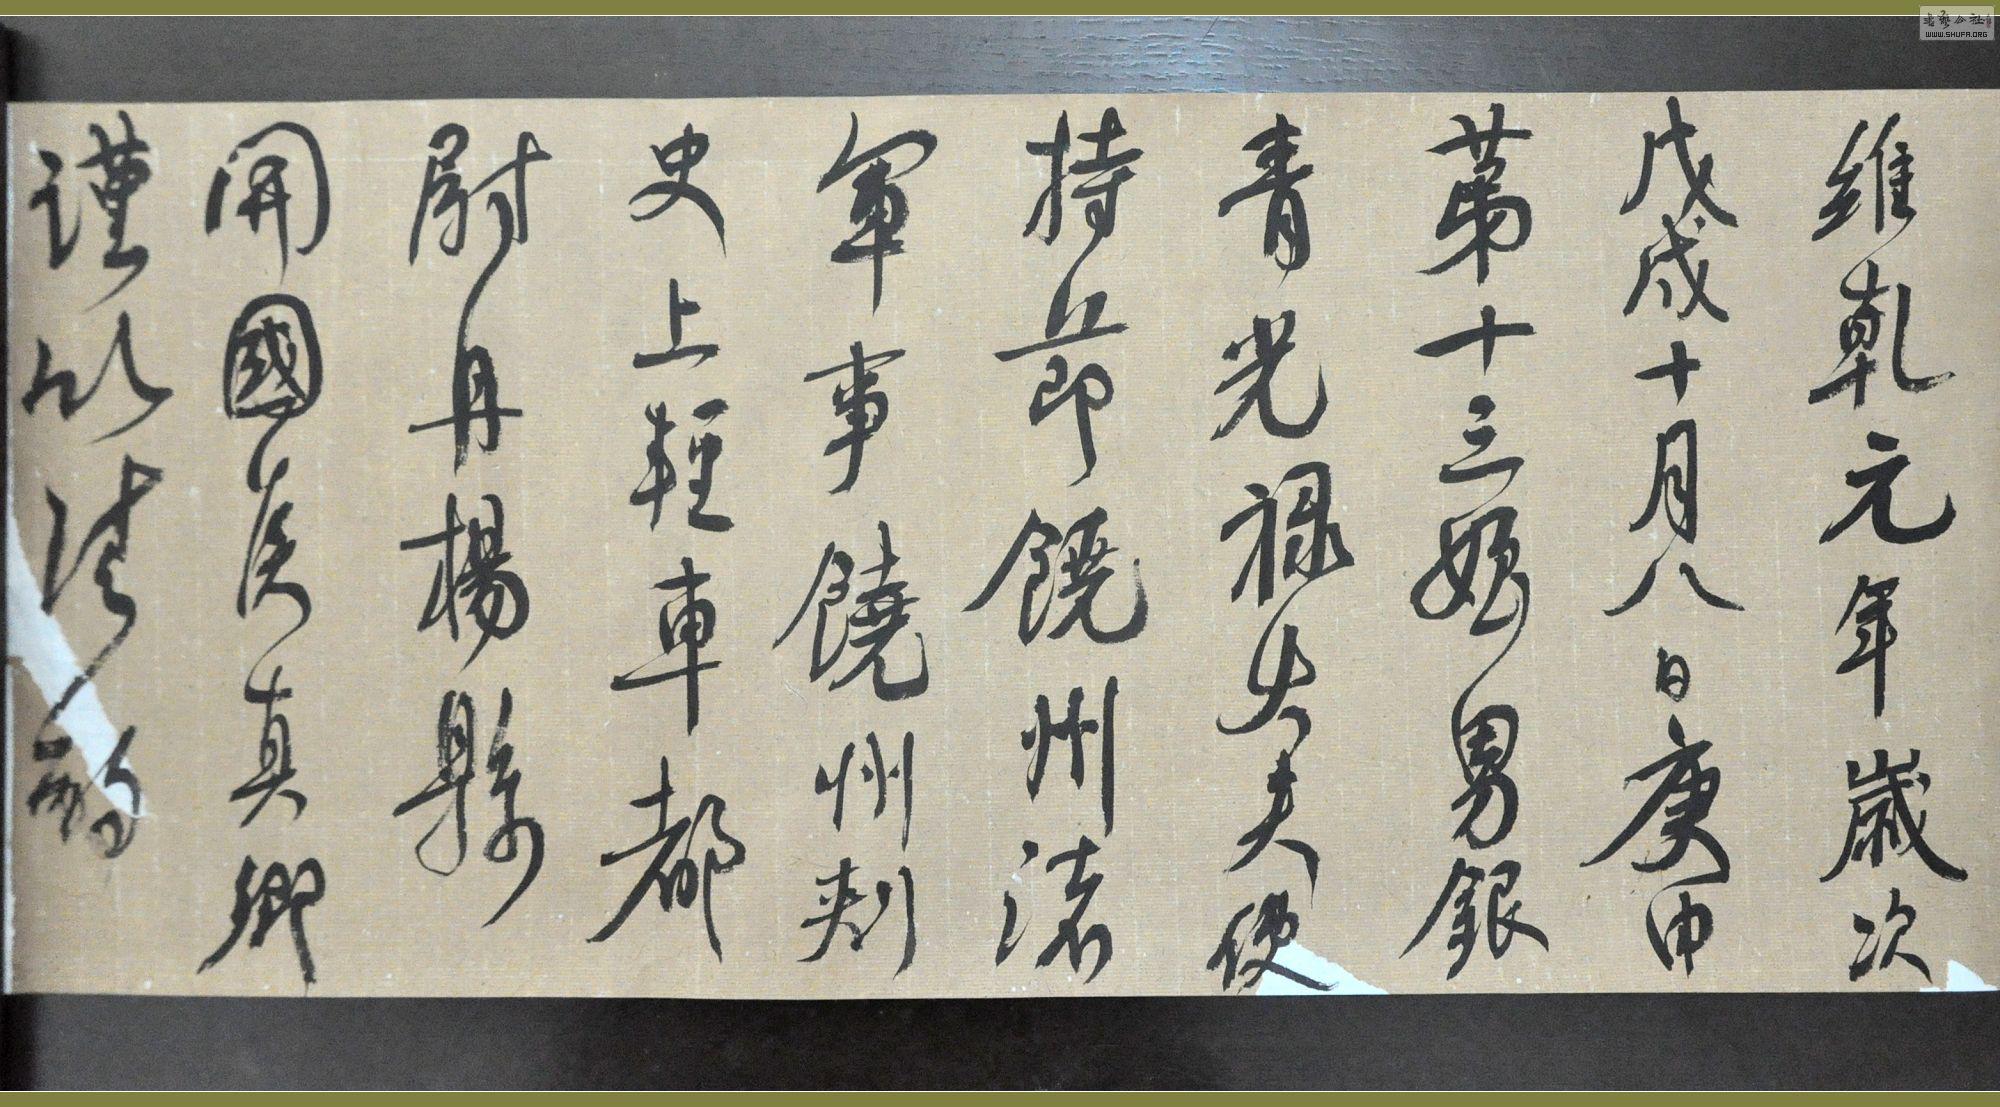 維乾元年歲次
戊戌十月八日庚申
第十三姪男銀
青光禄大夫使
持節饒州諸
軍事饒州刾
史上輕車都
尉丹楊縣
開國侯真卿
謹以清酌
書藝公社
WWW.SHUFA.ORG